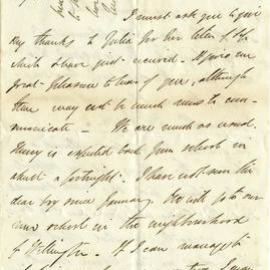 I must ask you to give
my thanks to Julia for her letter of
which I have just received. It gives me
great pleasure to hear of you, although
there may not be much news to com-
municate - We are much as usual.
Henry is expected back from school in
about a fortnight. I have not seen the
dear boy since January. He is to
school in the neighbourhood
of Wellington. If I can manage it